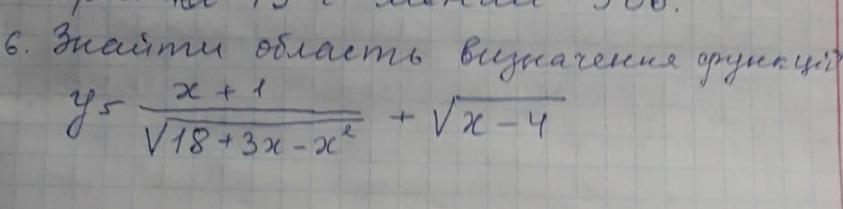 6. Знайти область визначення функції
y = \frac{x + 1}{\sqrt{18 + 3x - x^2}} + \sqrt{x - 4}